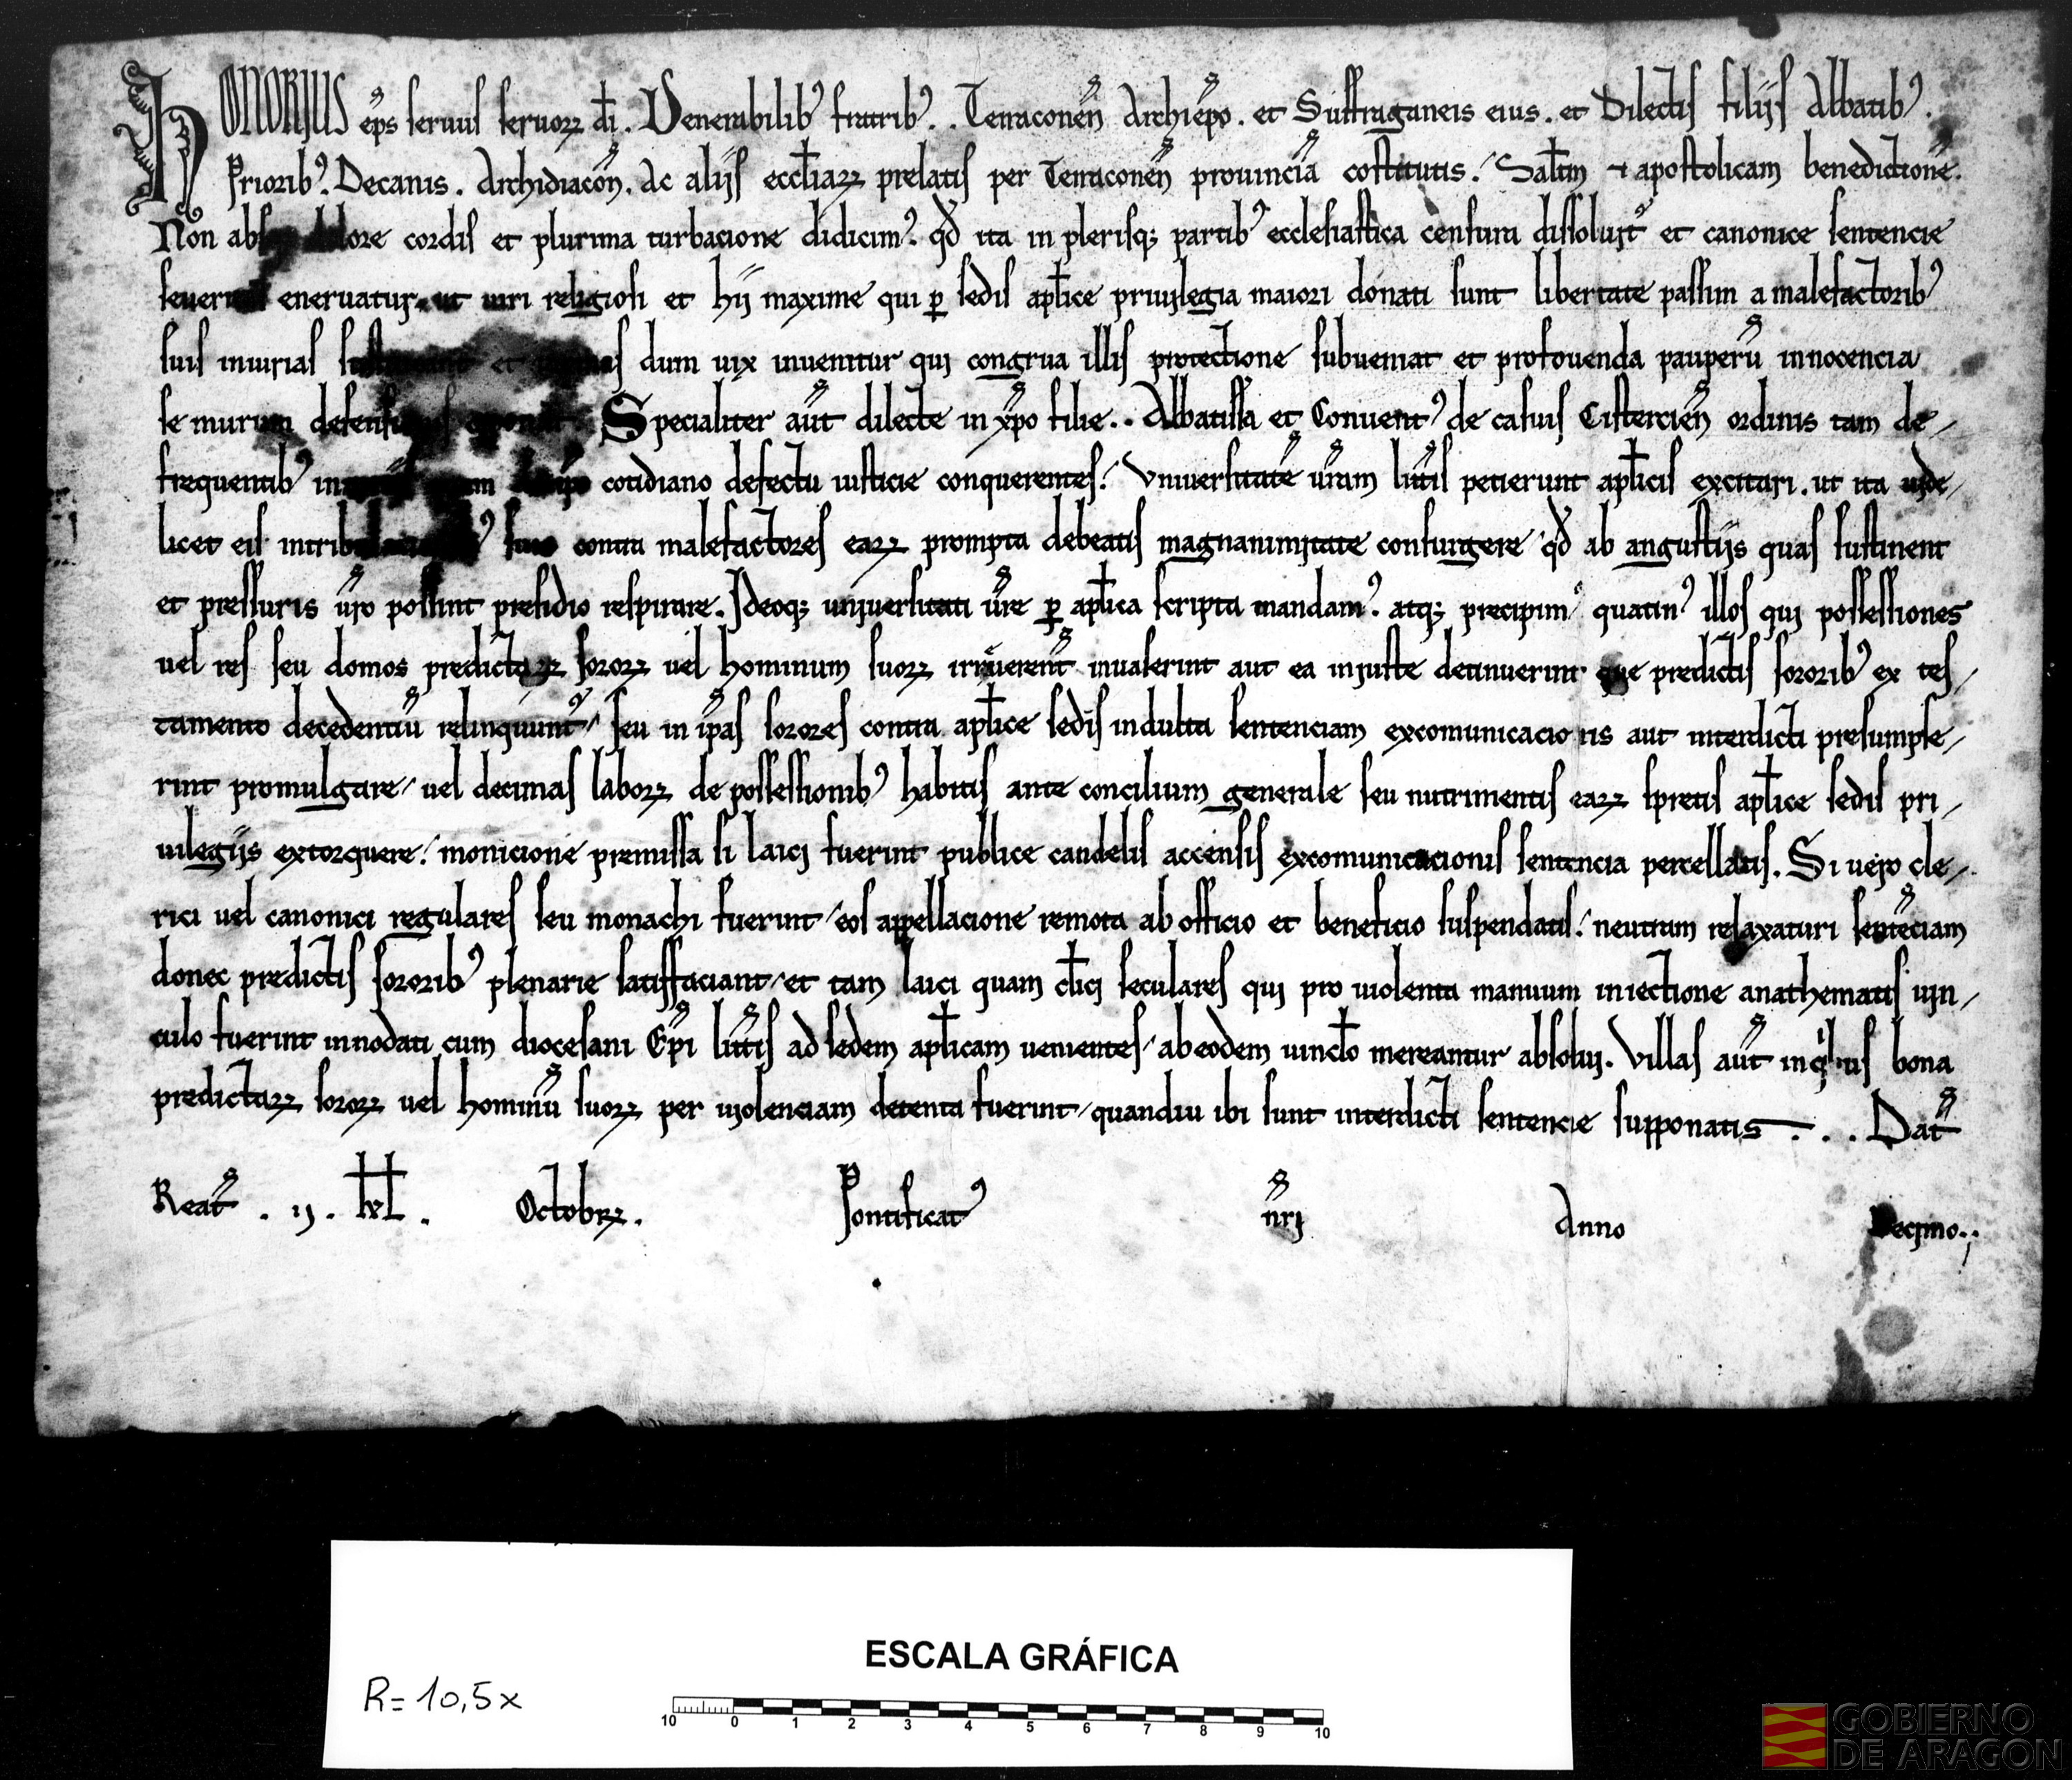 HONORIUS ep̄s seruus seruoꝝ dī. Venerabilibꝰ fratribꝰ .. Terraconen̄ Archiep̄o. et Suffraganeis eius. et Dilectis filijs Abbatibꝰ.
Prioribꝰ. Decanis. Archidiacon̄. Ac alijs eccl̄iaꝝ prelatis per Terraconen̄ prouinciā cōstitutis. Sal̄tm ⁊ apostolicam benedictionē.
Non abs dolore cordis et plurima turbacione didicimꝰ. qd̄ ita in plerisqꝫ partibꝰ ecclesiastica censura dissoluit᷑ et canonice sentencie
seueritas eneruatur. ut uiri religiosi et hij maxime qui ꝑ sedis apl̄ice priuilegia maiori donati sunt libertate passim a malefactoribꝰ
suis iniurias dum uix inuenitur qui congrua illis protectione subueniat et pro fouenda pauperū innocencia
se murum defensionis Specialiter aūt dilecte in xp̄o filie .. Abbatissa et Conuentꝰ de casuis Cistercien̄ ordinis tam de
frequentibꝰ in cotidiano defectu iusticie conquerentes. Vniuersitatē ur̄am litt̄is petierunt apl̄icis excitari. ut ita uide
licet eis in contra malefactores eaꝝ prompta debeatis magnanimitate consurgere qd̄ ab angustijs quas sustinent
et pressuris ur̄o possint presidio respirare. Ideoqꝫ uniuersitati ur̄e ꝑ apl̄ica scripta mandamꝰ. atqꝫ precipimꝰ quatinꝰ illos qui possessiones
uel res seu domos predictaꝝ sororꝝ uel hominum suoꝝ irreuerent᷑ inuaserint aut ea iniuste detinuerint que predictis sororibꝰ ex tes
tamento decedentiū relinquunt᷑ seu in ip̄as sorores contra apl̄ice sedis indulta sentenciam excomunicacionis aut interdicti presumpse
rint promulgare uel decimas laboꝝ de possessionibꝰ habitis ante concilium generale seu nutrimentis eaꝝ spretis apl̄ice sedis pri
uilegijs extorquere. monicione premissa si laici fuerint publice candelis accensis excomunicacionis sentencia percellatis. Si uero cle
rici uel canonici regulares seu monachi fuerint eos appellacione remota ab officio et beneficio suspendatis. neutram relaxaturi sentēciam
donec predictis sororibꝰ plenarie satisfaciant et tam laici quam cl̄ici seculares qui pro uiolenta manuum iniectione anathematis uin
culo fuerint innodati cum diocesani Ep̄i litt̄is ad sedem apl̄icam uenientes ab eodem uincl̄o mereantur absolui. Villas aūt in qⁱbus bona
predictaꝝ sororꝝ uel hominū suoꝝ per uiolenciam detenta fuerint quandiu ibi sunt interdicti sentencie supponatis. . . Dat̄
Reat̄ . ij . kl̄ . Octobꝝ. Pontificatꝰ nr̄i Anno Decimo.
ESCALA GRÁFICA
R=10,5x
10 0 1 2 3 4 5 6 7 8 9 10
GOBIERNO
DE ARAGON